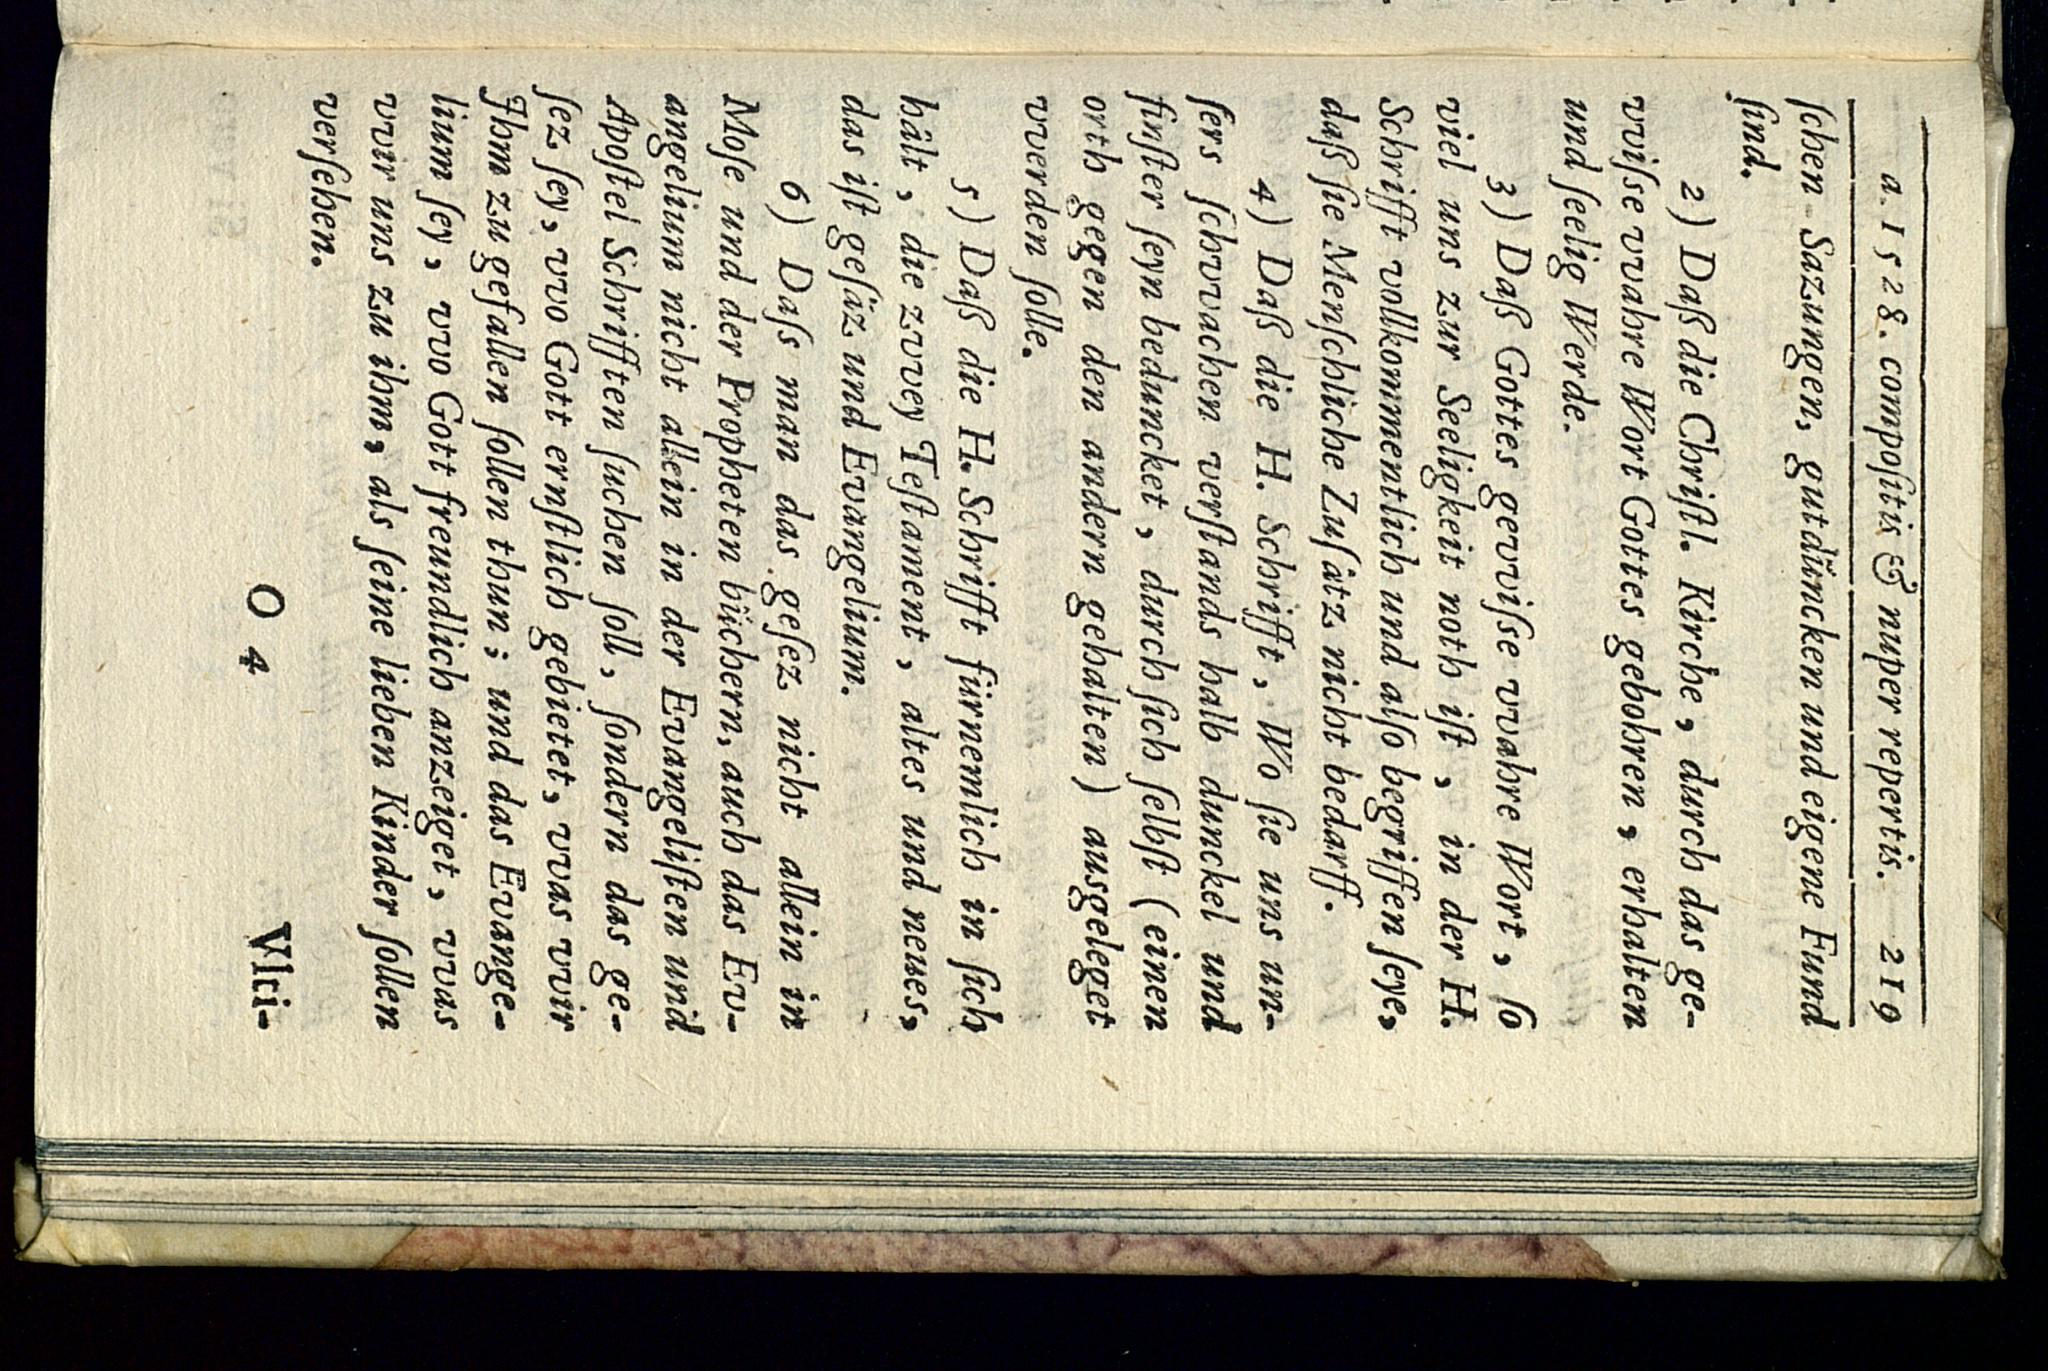 a. 1528. compoſitis & nuper repertis. 219
ſchen-Sazungen, gutdüncken und eigene Fund
ſind.
2) Daß die Chriſtl. Kirche, durch das ge-
vviſse vvahre Wort Gottes gebohren, erhalten
und ſeelig Werde.
3) Daß Gottes gevviſse vvahre Wort, ſo
viel uns zur Seeligkeit noth iſt, in der H.
Schrifft vollkommentlich und alſo begriffen ſeye,
daß ſie Menſchliche Zuſätz nicht bedarff.
4) Daß die H. Schrifft, Wo ſie uns un-
ſers ſchvvachen verſtands halb dunckel und
finſter ſeyn beduncket, durch ſich ſelbſt (einen
orth gegen den andern gehalten) ausgeleget
vverden ſolle.
5) Daß die H. Schrifft fürnemlich in ſich
hält, die zvvey Teſtament, altes und neues,
das iſt geſäz und Evangelium.
6) Daſs man das geſez nicht allein in
Moſe und der Propheten büchern, auch das Ev-
angelium nicht allein in der Evangeliſten und
Apoſtel Schrifften ſuchen ſoll, ſondern das ge-
ſez ſey, vvo Gott ernſtlich gebietet, vvas vvir
Ihm zu gefallen ſollen thun; und das Evange-
lium ſey, vvo Gott freundlich anzeiget, vvas
vvir uns zu ihm, als ſeine lieben Kinder ſollen
verſehen.
O 4 Vlci-